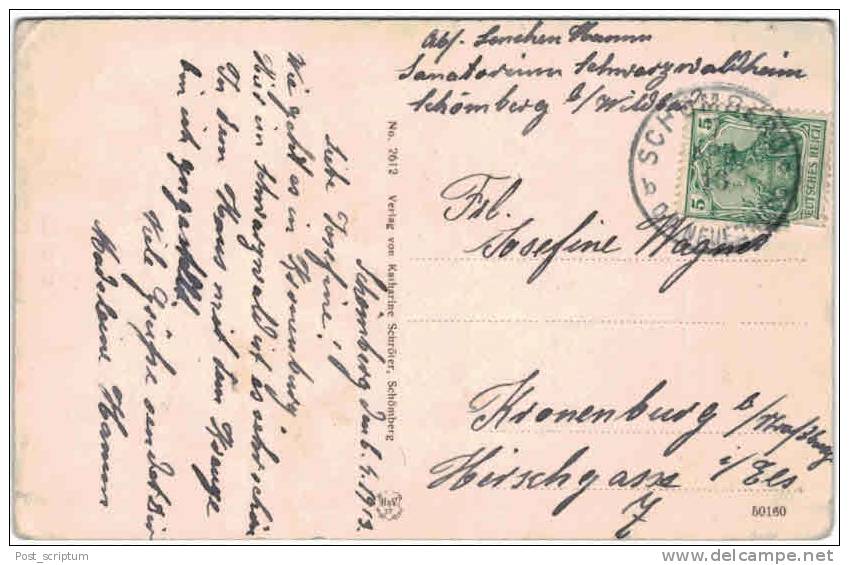 Abs. Lenchen Hamm
Sanatorium Schwarzwaldheim
Schömberg b/Wildbad
SCHÖMBERG
DEUTSCHES REICH
5
5
Frl.
Josefine Wagner
Kronenburg b/Straßburg
Hirschgasse i/Els
7
50160
No. 2612 Verlag von Katharine Schröter, Schömberg
Schömberg den 6. 4. 1913.
Liebe Josefine!
Wie geht es in Kronenburg.
Hier im Schwarzwald ist es sehr schön
In dem Haus mit dem Kreuze
bin ich angestellt.
Viele Grüße sendet Dir
Madeleine Hamm
Post_scriptum
delcampe.net